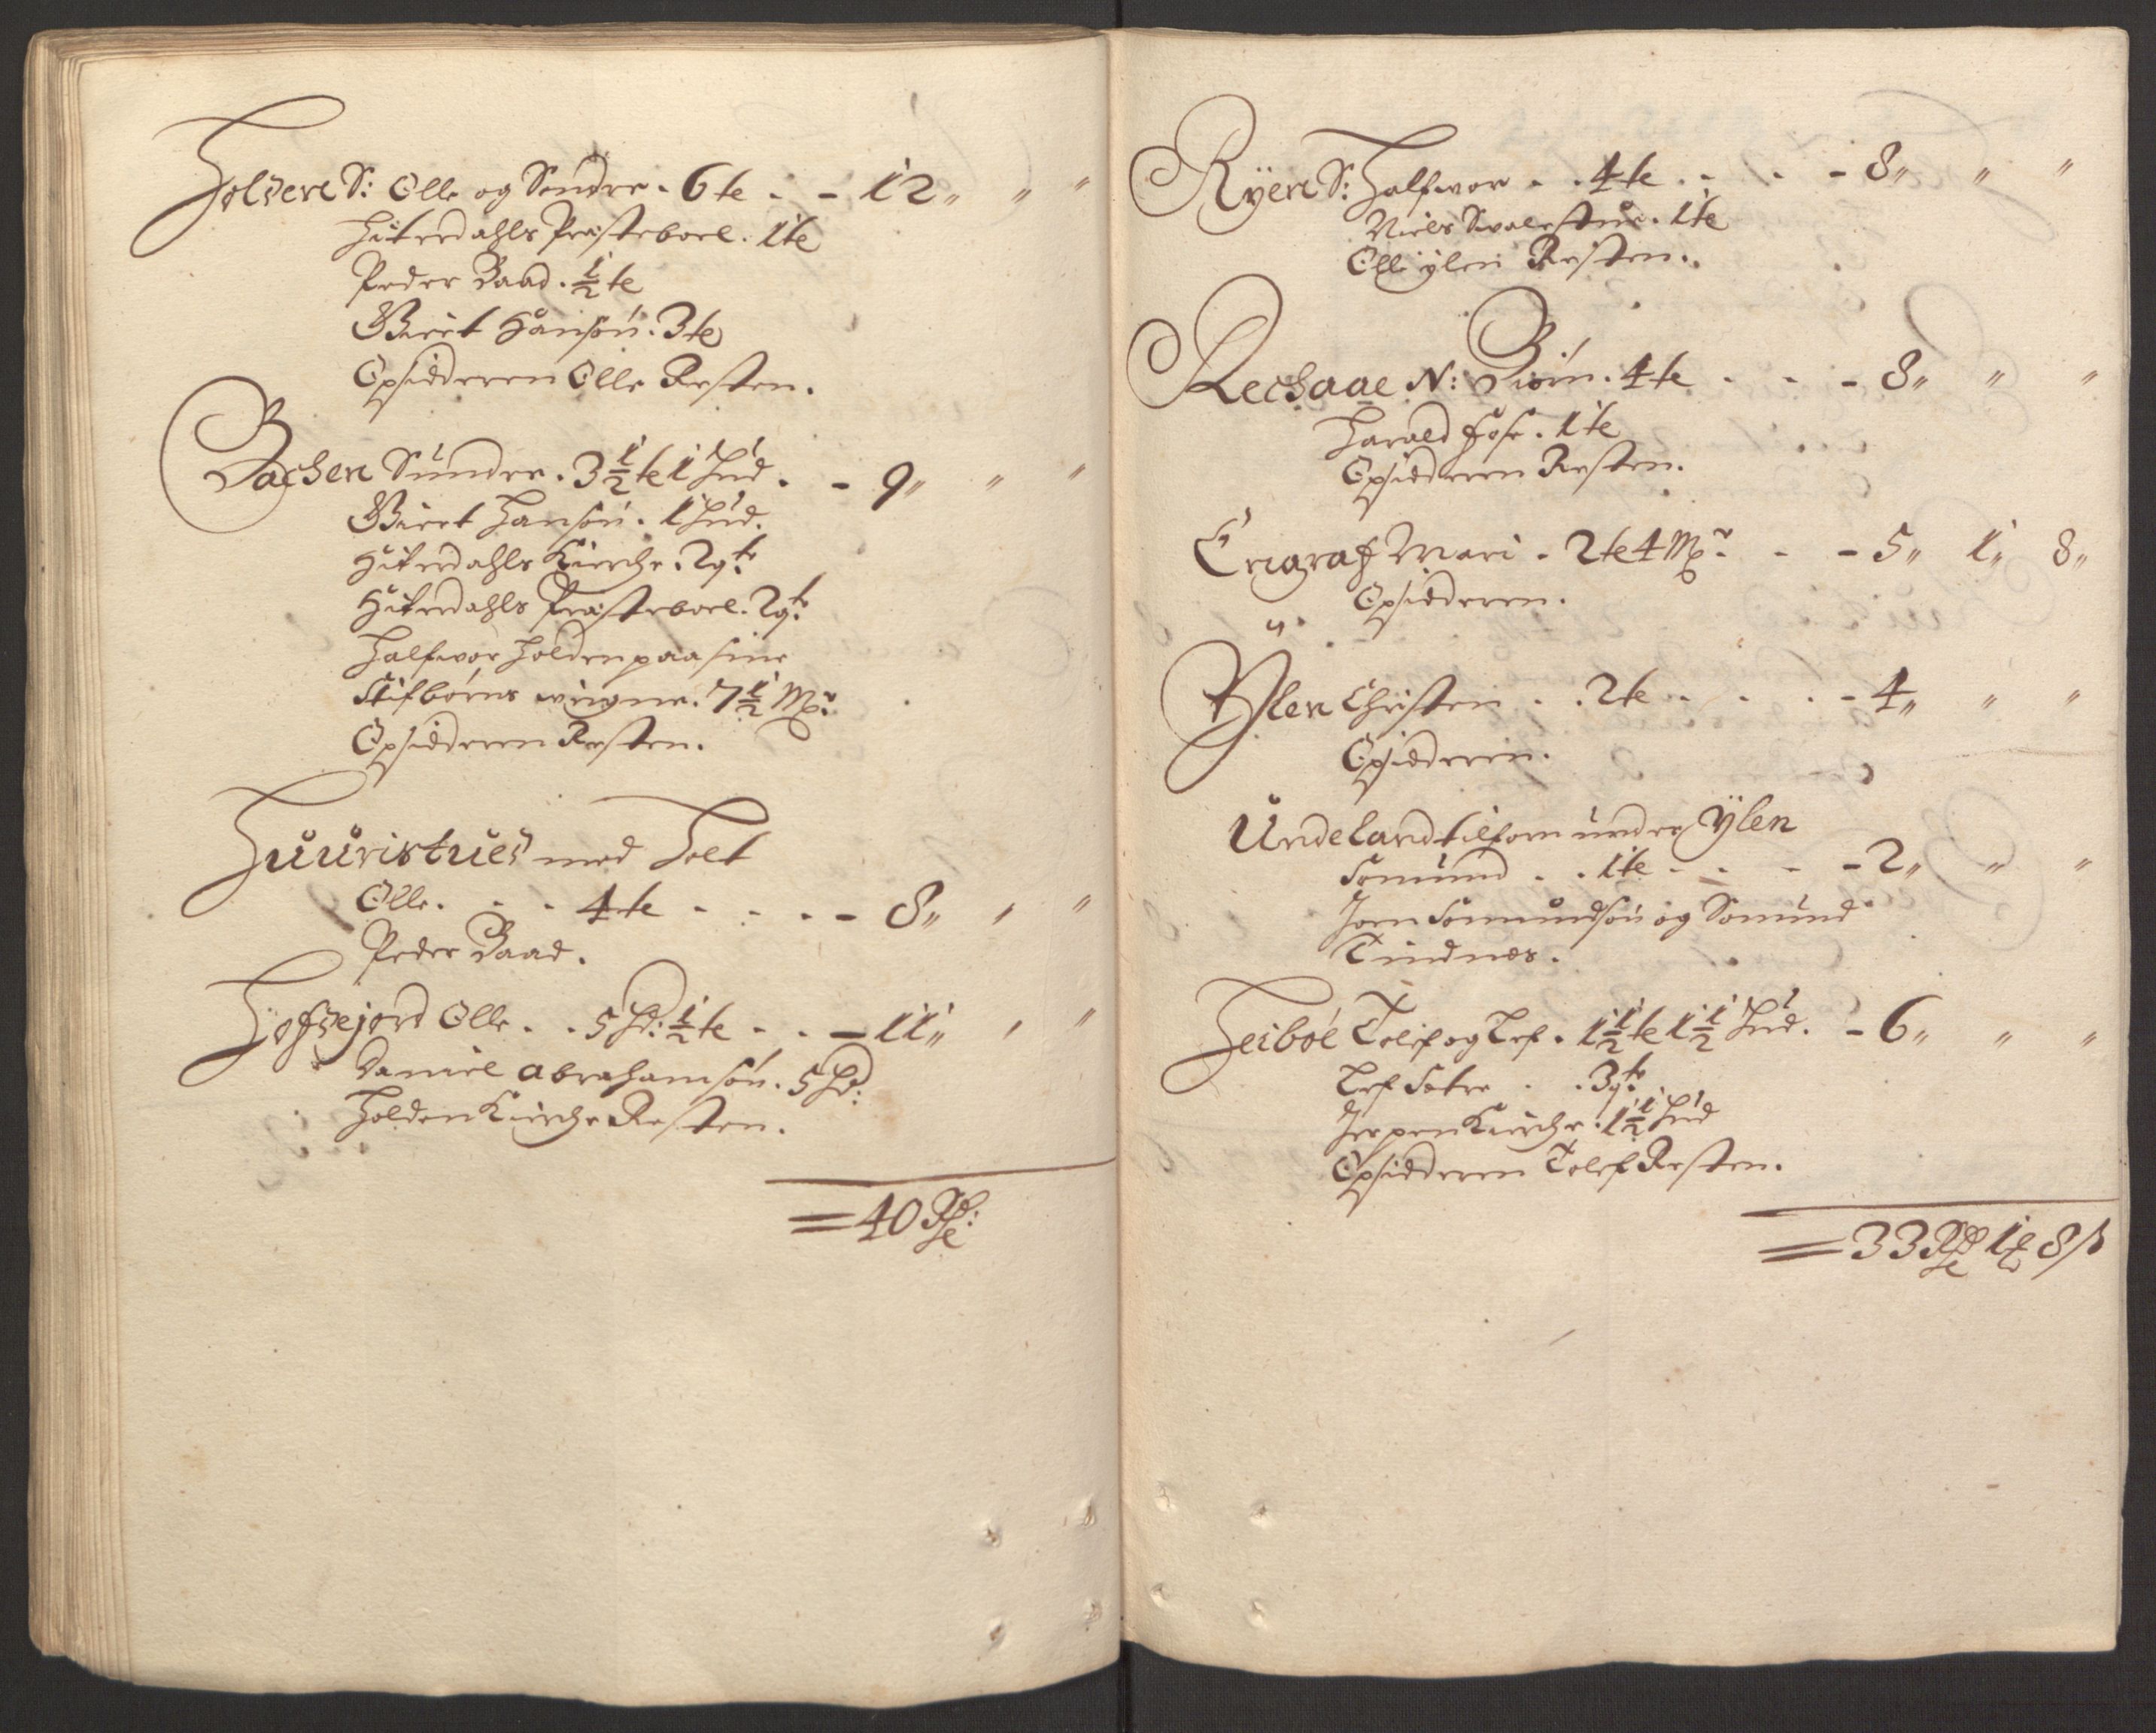 Holden S: Olle og Sondre . 6 te . - 12 „ „ „
Hiterdahls Præsteboel . 1 te
Peder Baad . ½ te
Giert Hansøn . 3 te
Opsidderen Olle Resten .
Bachen Sundre . 3½ te 1 Hud . - 9 „ „ „
Giert Hansøn . 1 Hud .
Hiterdahls Kirche . 2 qr
Hiterdahls Præsteboel . 2 qr
Halfwor Holden paa sine
Stifbørns wegne . 7½ Mr
Opsidderen Resten .
med
Olle . . . 4 te . . . - 8 „ „ „
Peder Baad .
Hofsejord Olle . . 5 Hd: ½ te . . - 11 „ „ „
Daniel Abrahamsøn . 5 Hd:
Holden Kirche Resten .
= 40 Rd:
Ryen S: Halfwor . . 4 te . . . - 8 „ „ „
Niels . 1 te
Olle Ylen Resten .
Rechaae N: Biøn . 4 te . . - 8 „ „ „
Harald Fosse . 1 te
Opsidderen Resten .
Engraf Mari . 2 te 4 Mr . - 5 „ 1 „ 8 „
Opsidderen .
Ylen Christen . . 2 te . . . - 4 „ „ „
Opsidderen .
Undeland tilforn under Ylen
Somund . . 1 te . . . - 2 „ „ „
Jorn Somundsøn og Somund
Tindnes .
Heibøe Tolef og Lef . 1½ te 1½ Hud . - 6 „ „ „
Lef Sætre . . 3 qr
Kirche . 1½ Hud
Opsidderen Tolef Resten .
= 33 Rd 1 8 s